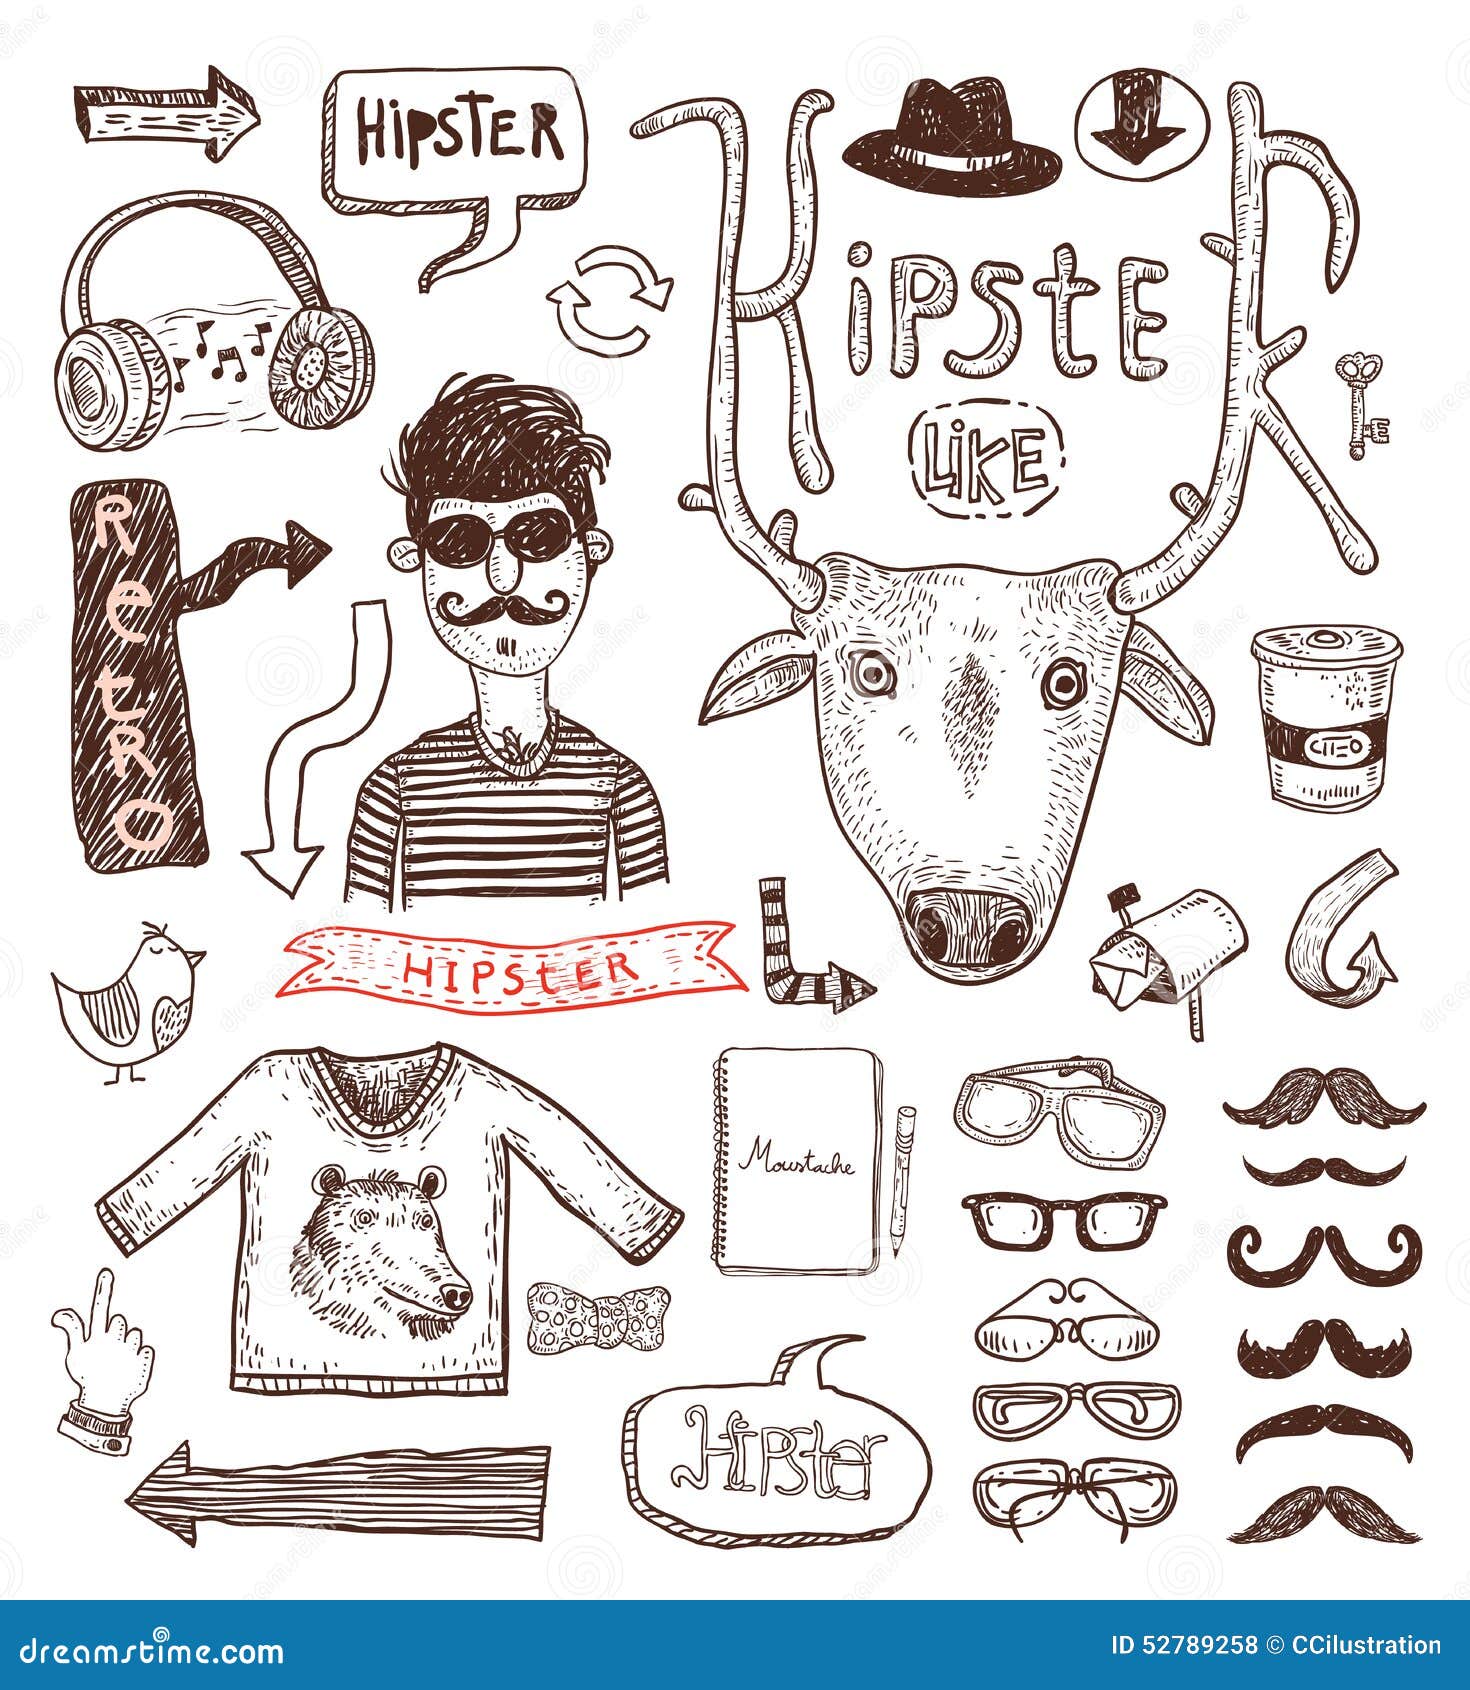 HipSTER
HiPStER
LiKE
RetRO
HIPSTER
Moustache
HiPSter
dreamstime.com
ID 52789258 © CCilustration